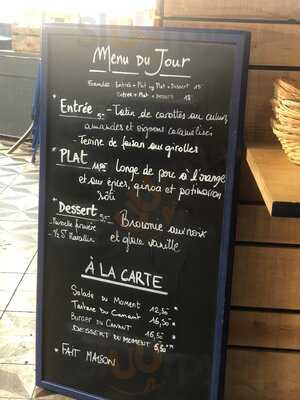 Menu du Jour
Formules Entrée + Plat ou Plat + Dessert 15
Entrée + Plat + Dessert 18
*Entrée 5 - Tatin de carottes au cumin,
amandes et oignons caramélisés
* Terrine de faisan aux girolles
*PLAT Longe de porc à l'orange
et aux épices, quinoa et potimarron
rôti
*Dessert 5 Brownie aux noix
et glace vanille
- ½ St Marcellin
À LA CARTE
Salade du Moment 12,50 *
Tartare du Camant 16,50 *
Burger du Camant 16,50 *
DESSERT DU MOMENT 5,50 *
* FAIT MAISON